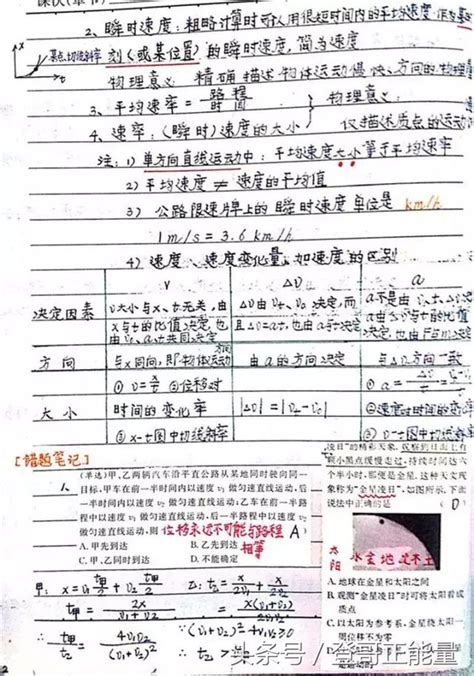 2、瞬时速度：粗略计算时可以用很短时间内的平均速度作为某
某点切线斜率
刻（或某位置）的瞬时速度，简为速度
物理意义：精确描述物体运动慢快、方向的物理
3、平均速率 = 路程/时间
物理意义：
4、速率：（瞬时）速度的大小
仅描述质点的运动
注：1）单方向直线运动中：平均速度大小等于平均速率
2）平均速度 ≠ 速度的平均值
3）公路限速牌上的瞬时速度单位是 km/h
1m/s = 3.6 km/h
4）速度、速度变化量、加速度的区别
v ΔV a
决定因素
v大小与x、t无关，由x与t的比值决定，也由v₀、a、t共同决定
ΔV由Vt、V₀决定，而且ΔV=at，也由a与t决定
a不是由V、t、ΔV
定，也由F与m决
方向
与x同向，即物体运动方向
由a的方向决定
与ΔV方向一致
大小
① V=x/t ②位移对时间的变化率
③ x-t图中切线斜率
|ΔV| = |Vt - V₀|
②速度对时间的变
③ v-t图中切线斜率
[错题笔记]
1、(单选)甲、乙两辆汽车沿平直公路从某地同时驶向同一
目标,甲车在前一半时间内以速度 v₁ 做匀速直线运动,后
一半时间内以速度 v₂ 做匀速直线运动;乙车在前一半路
程中以速度 v₁ 做匀速直线运动,后一半路程中以速度 v₂
做匀速直线运动,则 位移永远不可能与路程相等 A )
A. 甲先到达 B. 乙先到达
C. 同时到达 D. 不能确定
甲：x = v₁ t甲/2 + v₂ t甲/2 乙：t乙 = x/2v₁ + x/2v₂
t甲 = 2x/(v₁+v₂) = x(v₁+v₂)/2v₁v₂
∴ t甲/t乙 = 4v₁v₂/(v₁+v₂)² ∵ (v₁+v₂)² - 4v₁v₂ > 0
∴ t乙 >
凌日”的精彩天象,观察到日面上有
颗小黑点缓慢走过,持续时间达六
个半小时,那便是金星,这种天文现
象称为“金星凌日”,如图所示,下面
说法中正确的是 ( D )
太阳
水金地火木土
A. 地球在金星和太阳之间
B. 观测“金星凌日”时可将太阳看成
质点
C. 以太阳为参考系,金星绕太阳
位移不为零
头条号 / 荟哥正能量